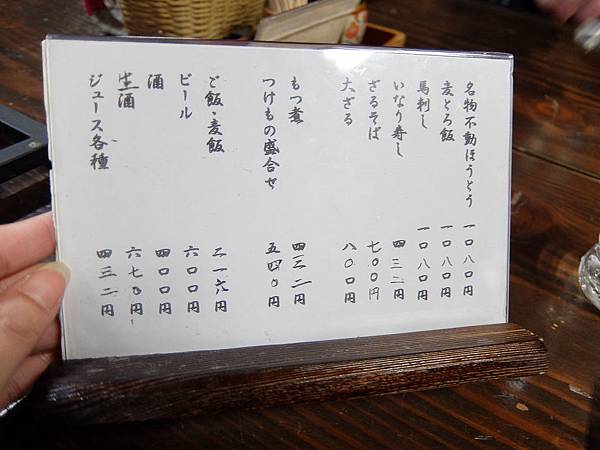 名物不動ほうとう 一〇八〇円
麦とろ飯 一〇八〇円
馬刺し 一〇八〇円
いなり寿し 四三二円
ざるそば 七〇〇円
大ざる 八〇〇円
もつ煮 四三二円
つけもの盛合せ 五四〇円
ご飯・麦飯 二一六円
ビール 六〇〇円
酒 四〇〇円
生酒 六七〇円
ジュース各種 四三二円